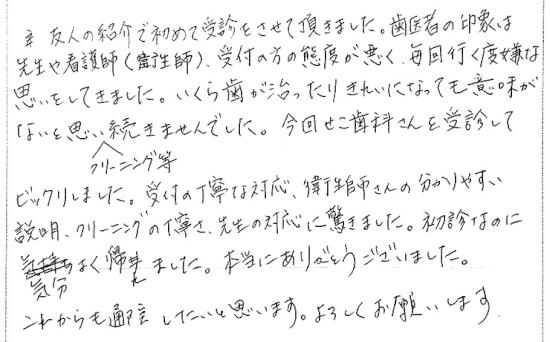 友人の紹介で初めて受診をさせて頂きました。歯医者の印象は
先生や看護師(衛生師)、受付の方の態度が悪く、毎回行く度嫌な
思いをしてきました。いくら歯が治ったりきれいになっても意味が
ないと思い続きませんでした。今回せこ歯科さんを受診して
クリーニング等
ビックリしました。受付の丁寧な対応、衛生師さんの分かりやすい
説明、クリーニングの丁寧さ、先生の対応に驚きました。初診なのに
気持ちよく帰れました。本当にありがとうございました。
気分
これからも通院したいと思います。よろしくお願いします。